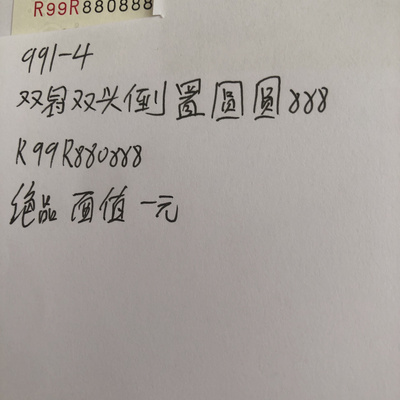 R99R880888
991-4
双冠双头倒置圆圆888
R99R880888
绝品面值一元